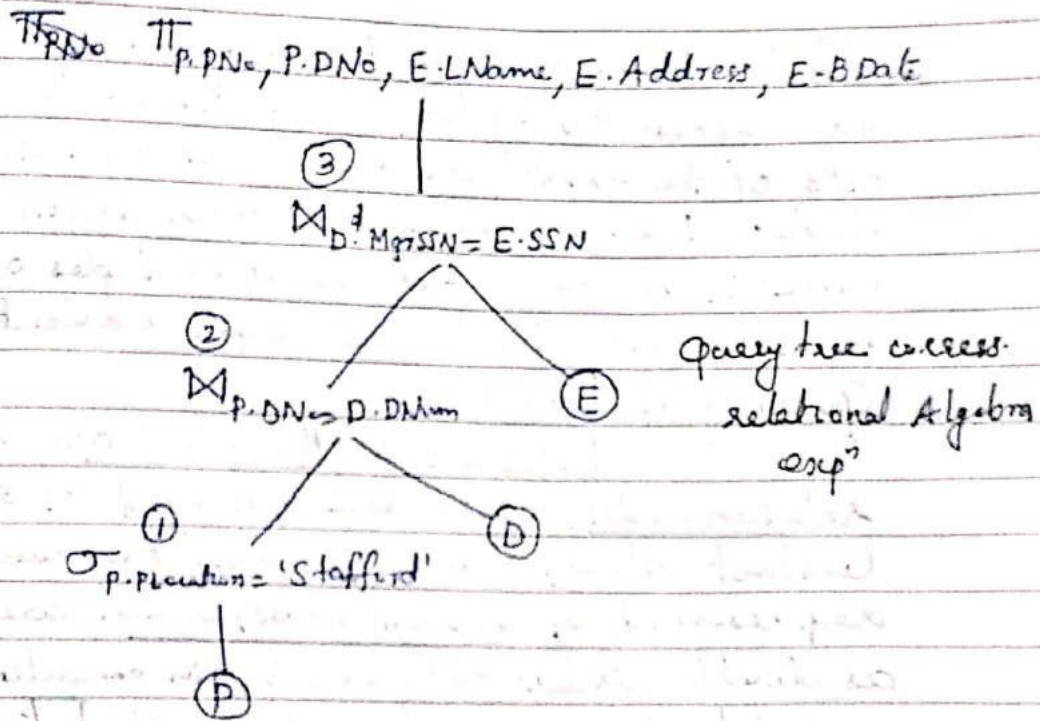 π P.PNo, P.DNo, E.LName, E.Address, E.BDate
③
⋈ D.MgrSSN = E.SSN
②
⋈ P.DNo = D.DNum
E
Query tree
relational Algebra
expⁿ
①
D
σ P.PLocation = 'Stafford'
P